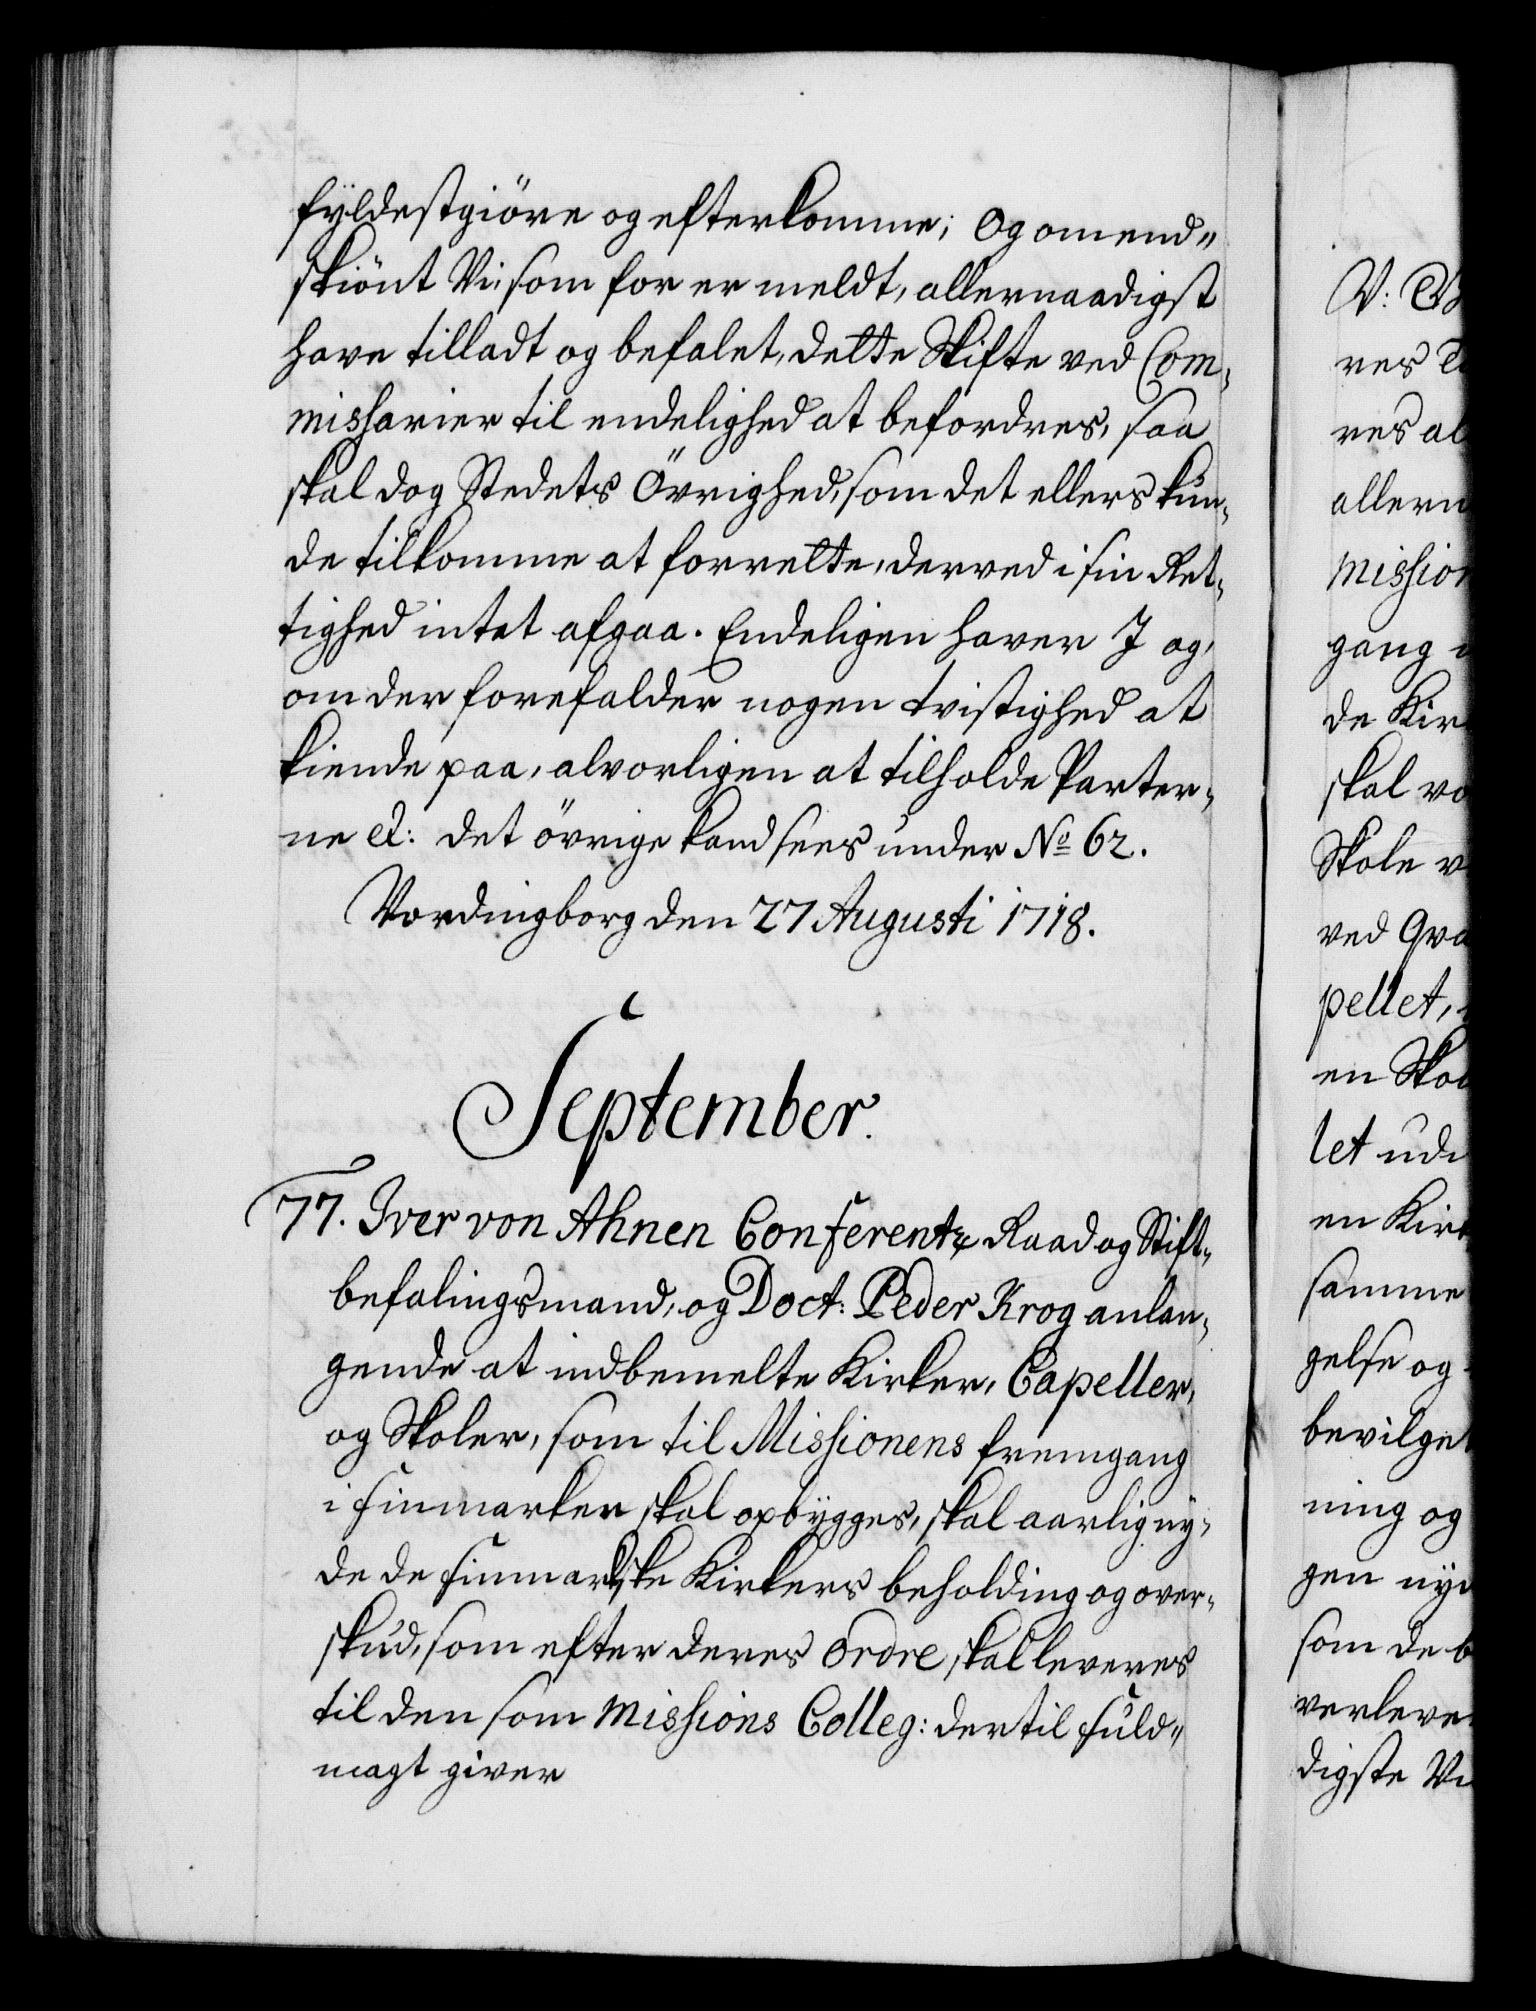 fyldestgiöre og efterkomme; Og omend„
skiönt Vi, som for er meldt, allernaadigst
have tilladt og befalet, dette Skifte ved Com„
missarier til endelighed at befordres, saa
skal dog Stedets Övrighed, som det ellers kun„
de tilkomme at forrette, derved i sin Ret„
tighed intet afgaa. Endeligen haver I og,
om der forefalder nogen tvistighed at
kiende paa, alvorligen at tilholde Parter„
ne &: det övrige kand sees under No 62.
Vordingborg den 27 Augusti 1718.
September.
77. Iver von Ahnen Conferentz Raad og Stift„
befalingsmand, og Doct: Peder Krog anlan„
gende at indbemelte Kirker, Capeller,
og Skoler, som til Missionens fremgang
i Finmarken skal opbygges, skal aarlig ny„
de de Finmarkske Kirkers beholding og over„
skud, som efter deres ordre skal leveres
til den som Missions Colleg: dertil fuld„
magt giver
V:
res
res al
allern
mission
gang
de Kir
skal
Skole
ved
pellet,
en Skol
let ud
en Kirk
samme
gelse og
bevilget
ning og
gen nyd
som de b
verleve
digste Vi